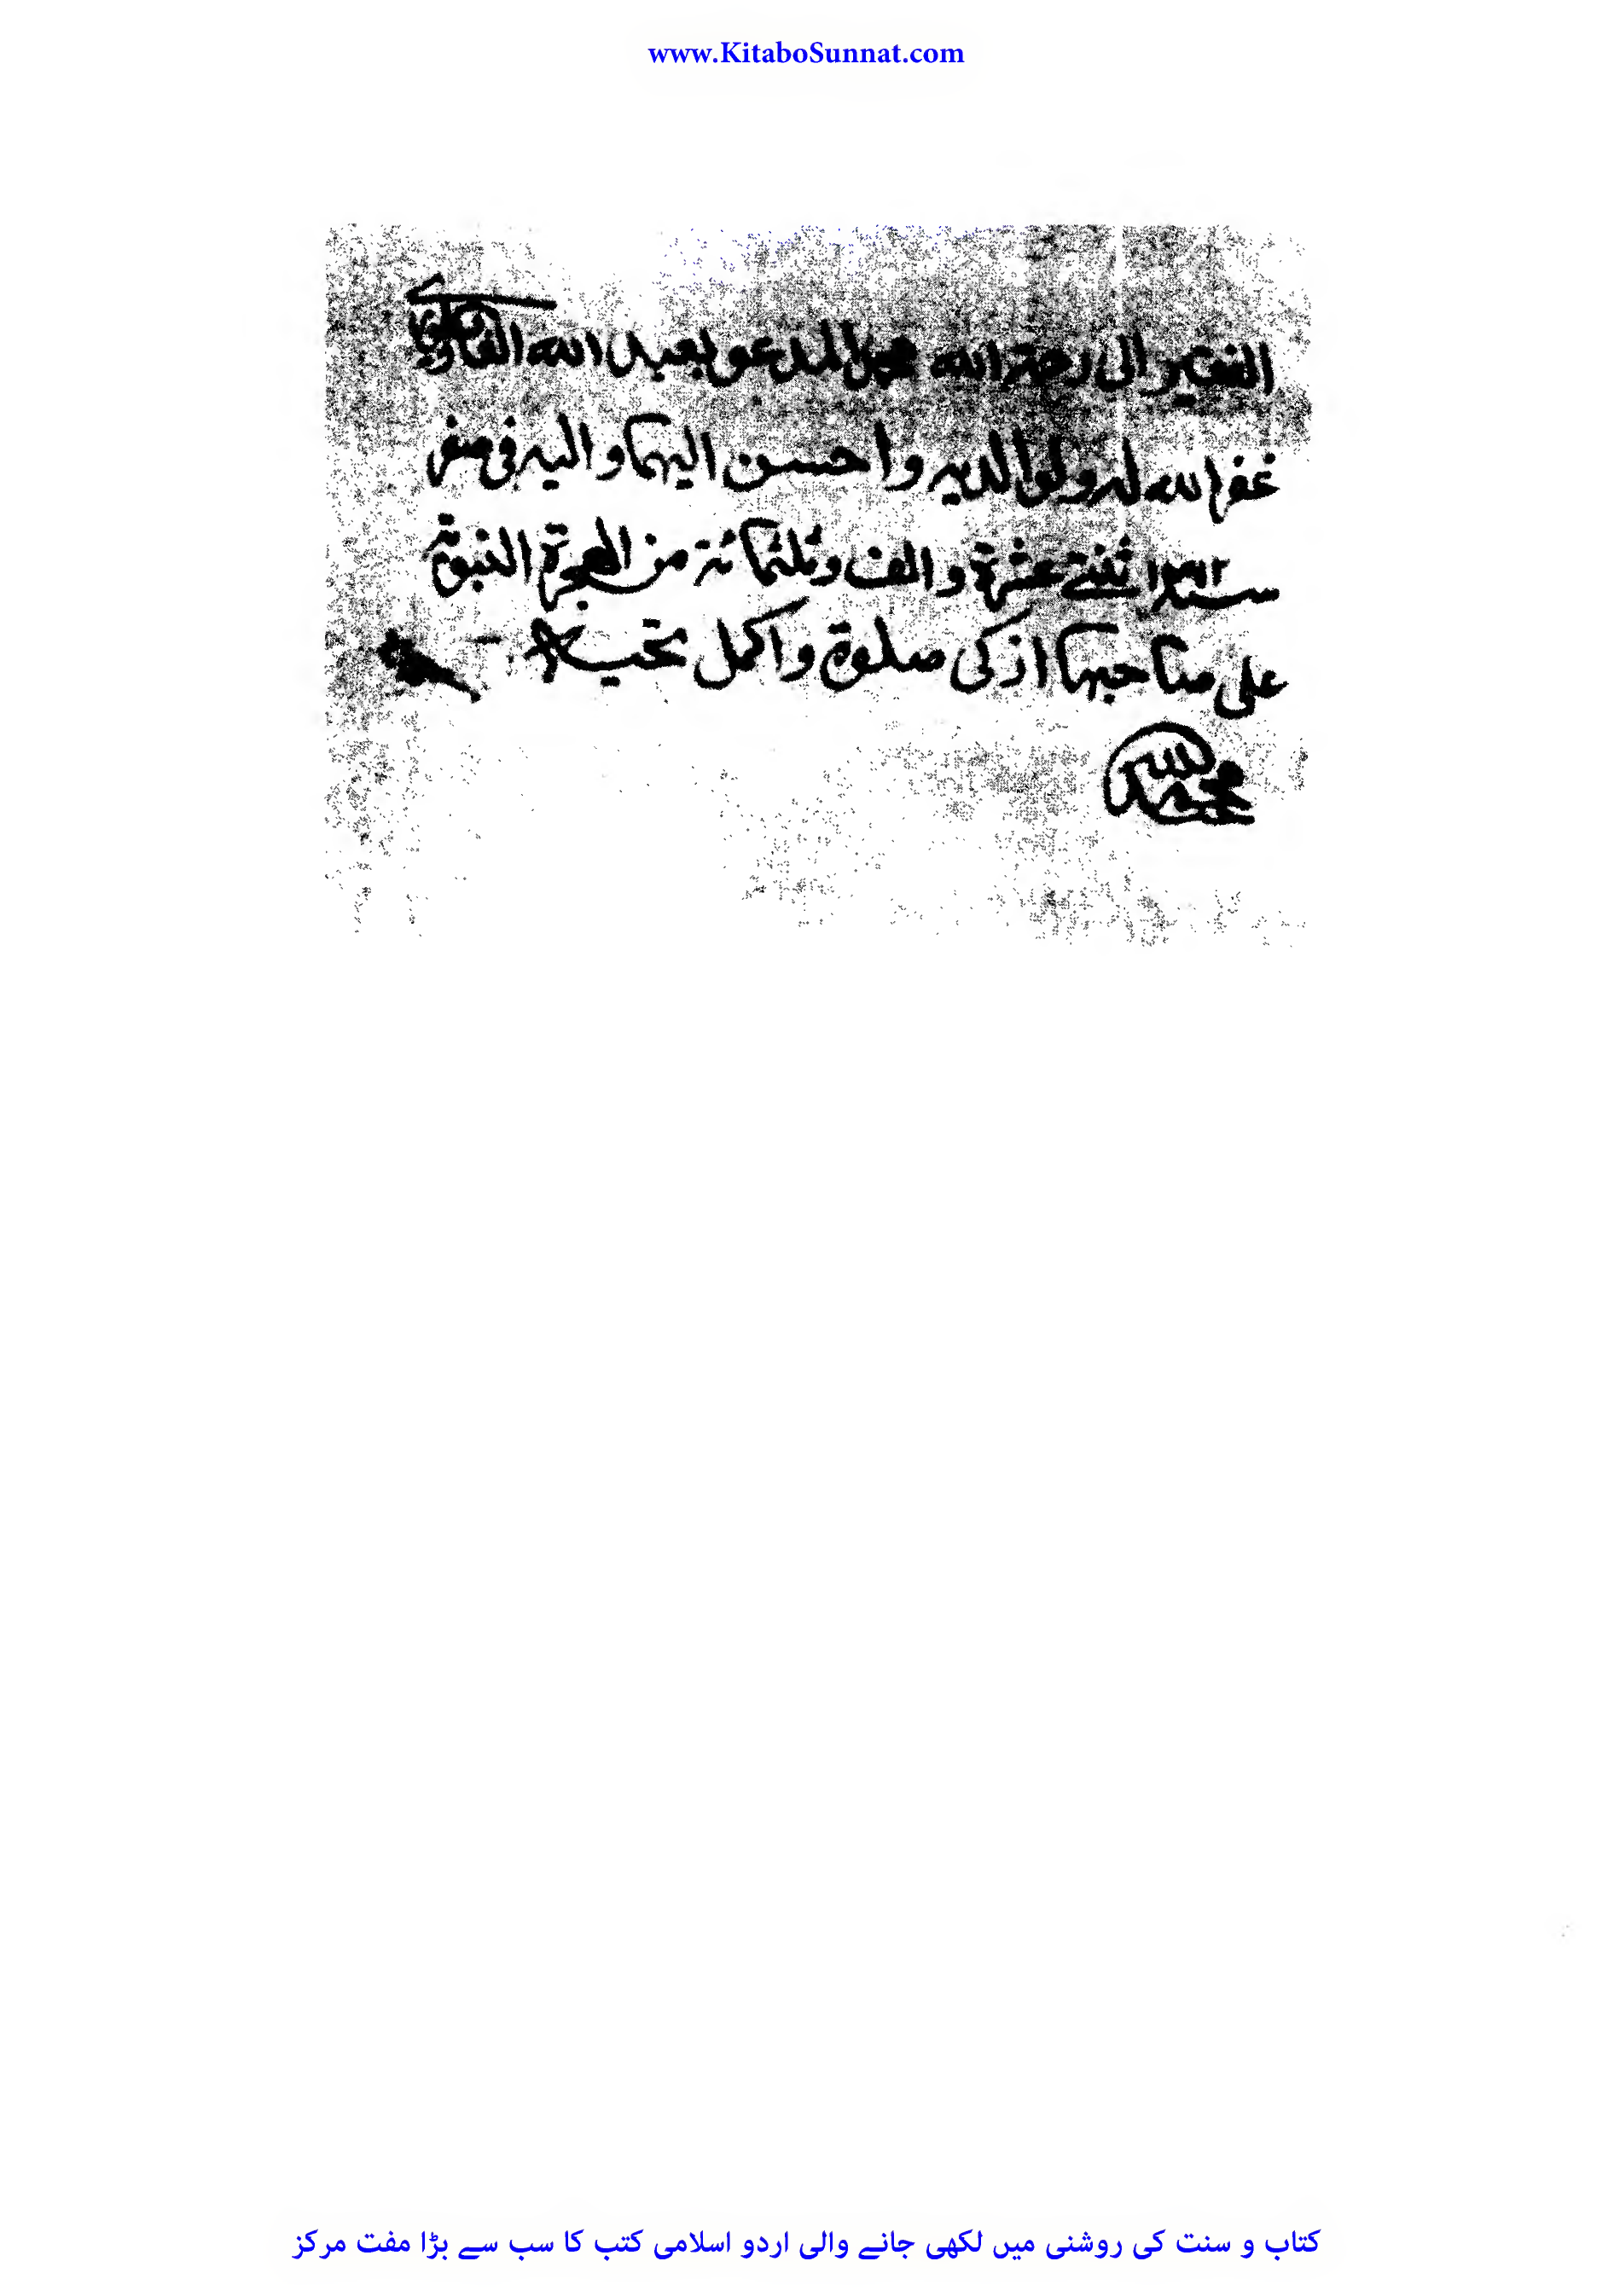 www.KitaboSunnat.com
الفقير الى رحمة الله محمد المدعو بعبد الله الغازيفوري
غفر الله له ولوالديه واحسن اليهما واليه في صفر
سنة ١٣١٢ ثنتي عشرة والف وثلثمائة من الهجرة النبوية
على صاحبها ازكى صلوة واكمل تحية
محمد عبد الله
کتاب و سنت کی روشنی میں لکھی جانے والی اردو اسلامی کتب کا سب سے بڑا مفت مرکز